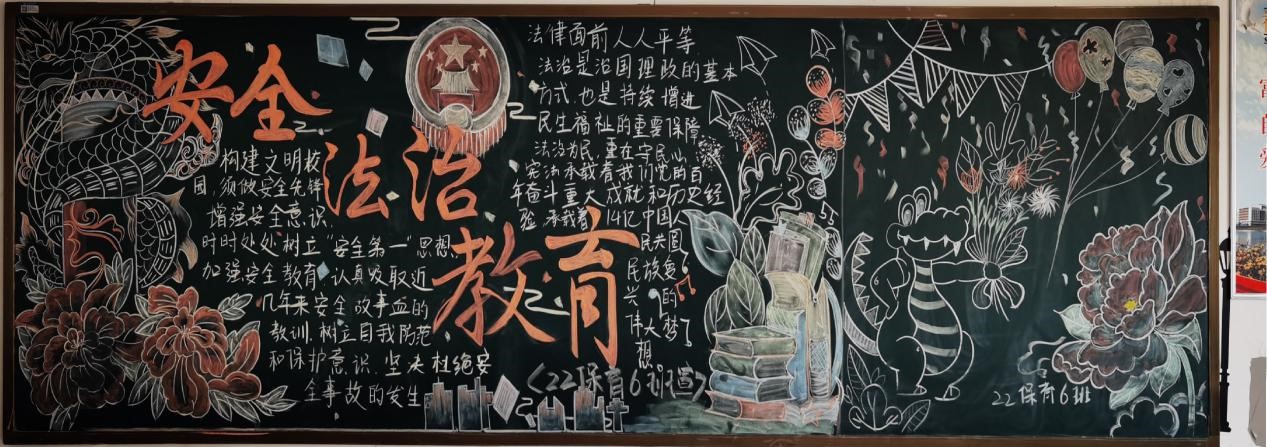 安全
法治
教育
构建文明校
园，须做安全先锋
增强安全意识，
时时处处树立“安全第一”思想，
加强安全教育，认真吸取近
几年来安全故事血的
教训，树立自我防范
和保护意识，坚决杜绝安
全事故的发生
法律面前人人平等，
法治是治国理政的基本
方式，也是持续增进
民生福祉的重要保障
法治为民，重在守民心，
宪法承载着我们党的百
年奋斗重大成就和历史经
验，承载着14亿中国人
民共圆
民族复
兴的
伟大梦
想
《22保育6班宣》
22保育6班